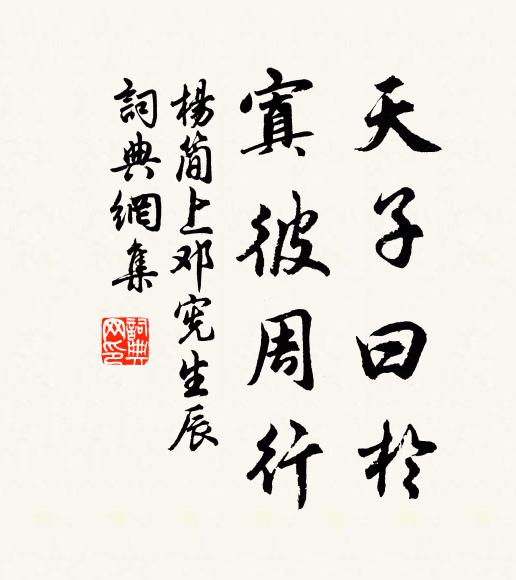 天子曰於
寘彼周行
楊简上邓宪生辰
詞典網集
詞典
网印